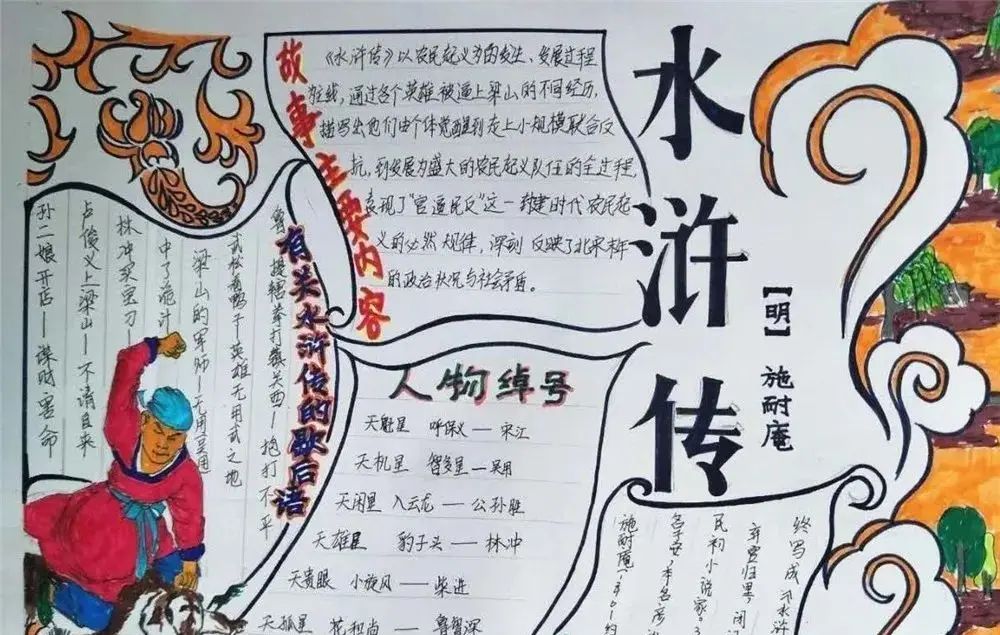 水浒传
【明】施耐庵
故事主要内容
《水浒传》以农民起义为的发生、发展过程
主线,通过各个英雄被逼上梁山的不同经历,
描写出他们由个体觉醒到走上小规模联合反
抗,到发展为盛大的农民起义队伍的全过程,
表现了"官逼民反"这一封建时代农民起
义的必然规律,深刻反映了北宋末年
的政治状况与社会矛盾。
有关水浒传的歇后语
鲁提辖拳打镇关西—抱打不平
武松看鸭子—英雄无用武之地
梁山的军师—无用吴用
林冲买宝刀—
中了诡计
卢俊义上梁山—不请自来
孙二娘开店—谋财害命
人物绰号
天魁星 呼保义—宋江
天机星 智多星—吴用
天闲星 入云龙——公孙胜
天雄星 豹子头—林冲
天贵眼 小旋风——柴进
天孤星 花和尚——鲁智深
施耐庵,
名子安,本名彦
民初小说家。
弃官归里,闭
终写成《水浒